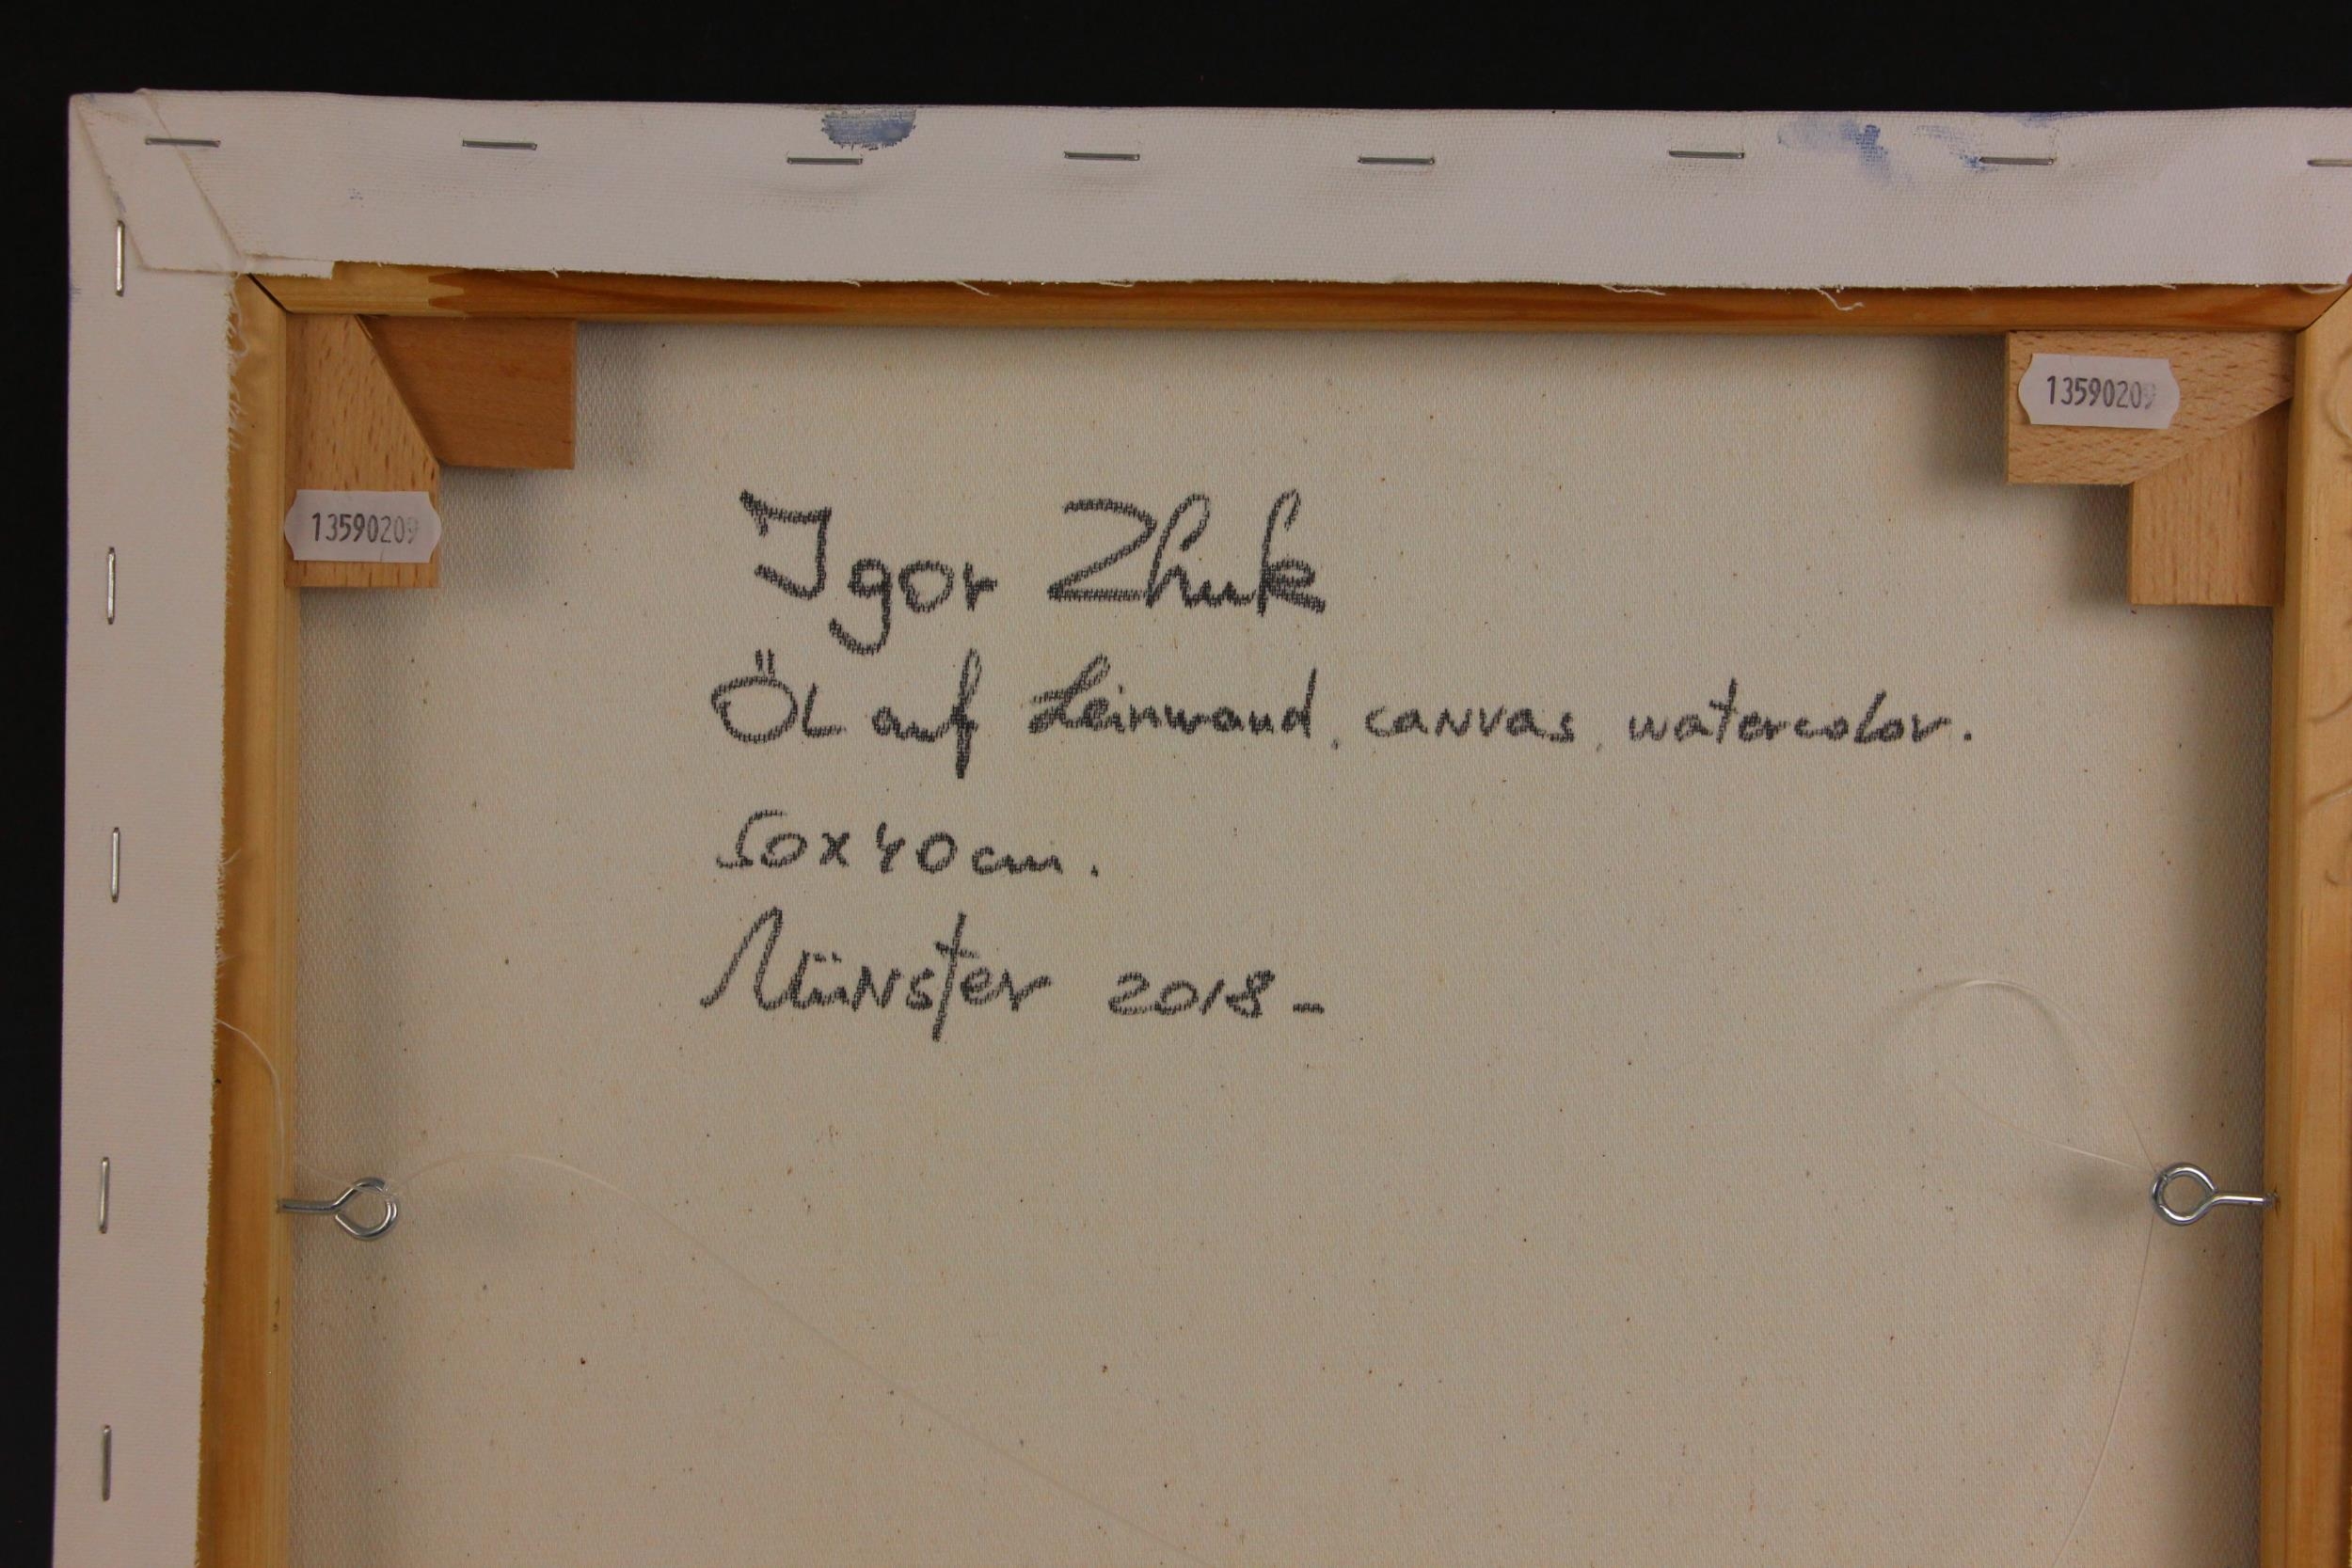 13590209
13590209
Igor Zhuk
Öl auf Leinwand, canvas, watercolor.
50x40cm.
Münster 2018-